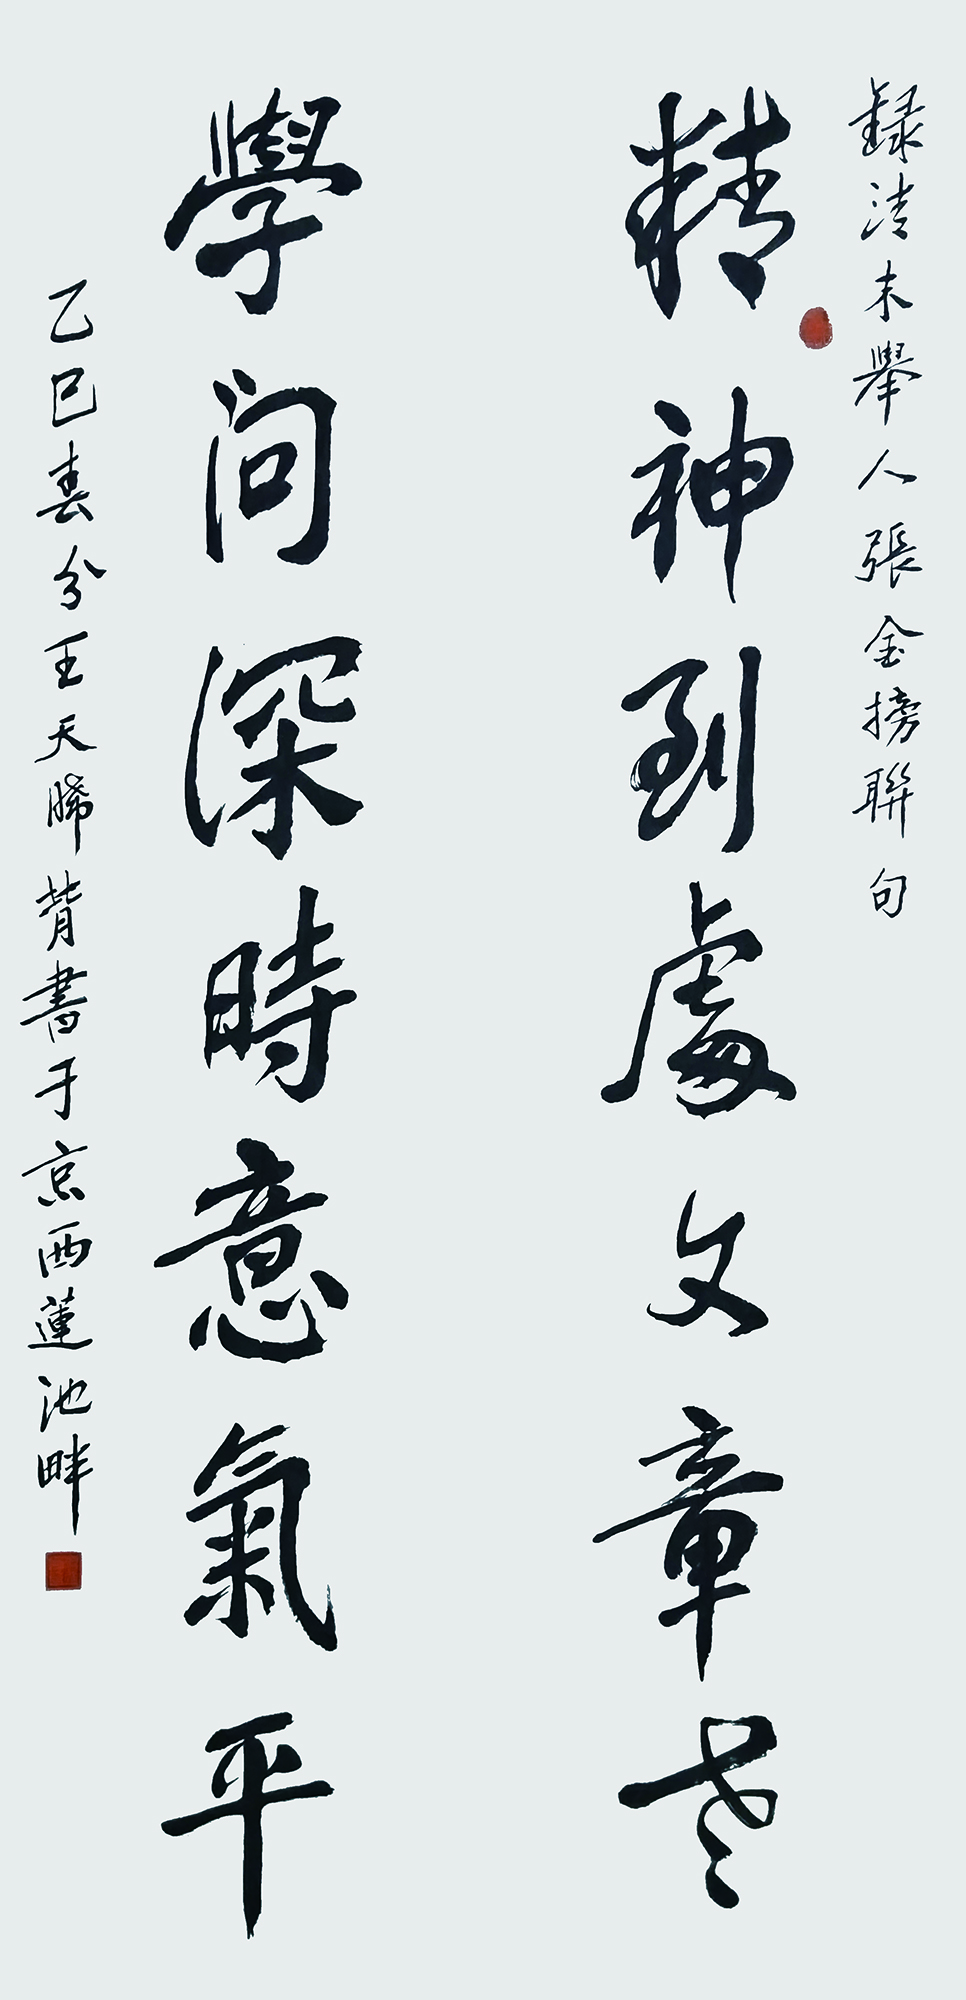 録清末舉人張金榜聯句
精神到處文章老
學問深時意氣平
乙巳春分王天晞背書于京西蓮池畔